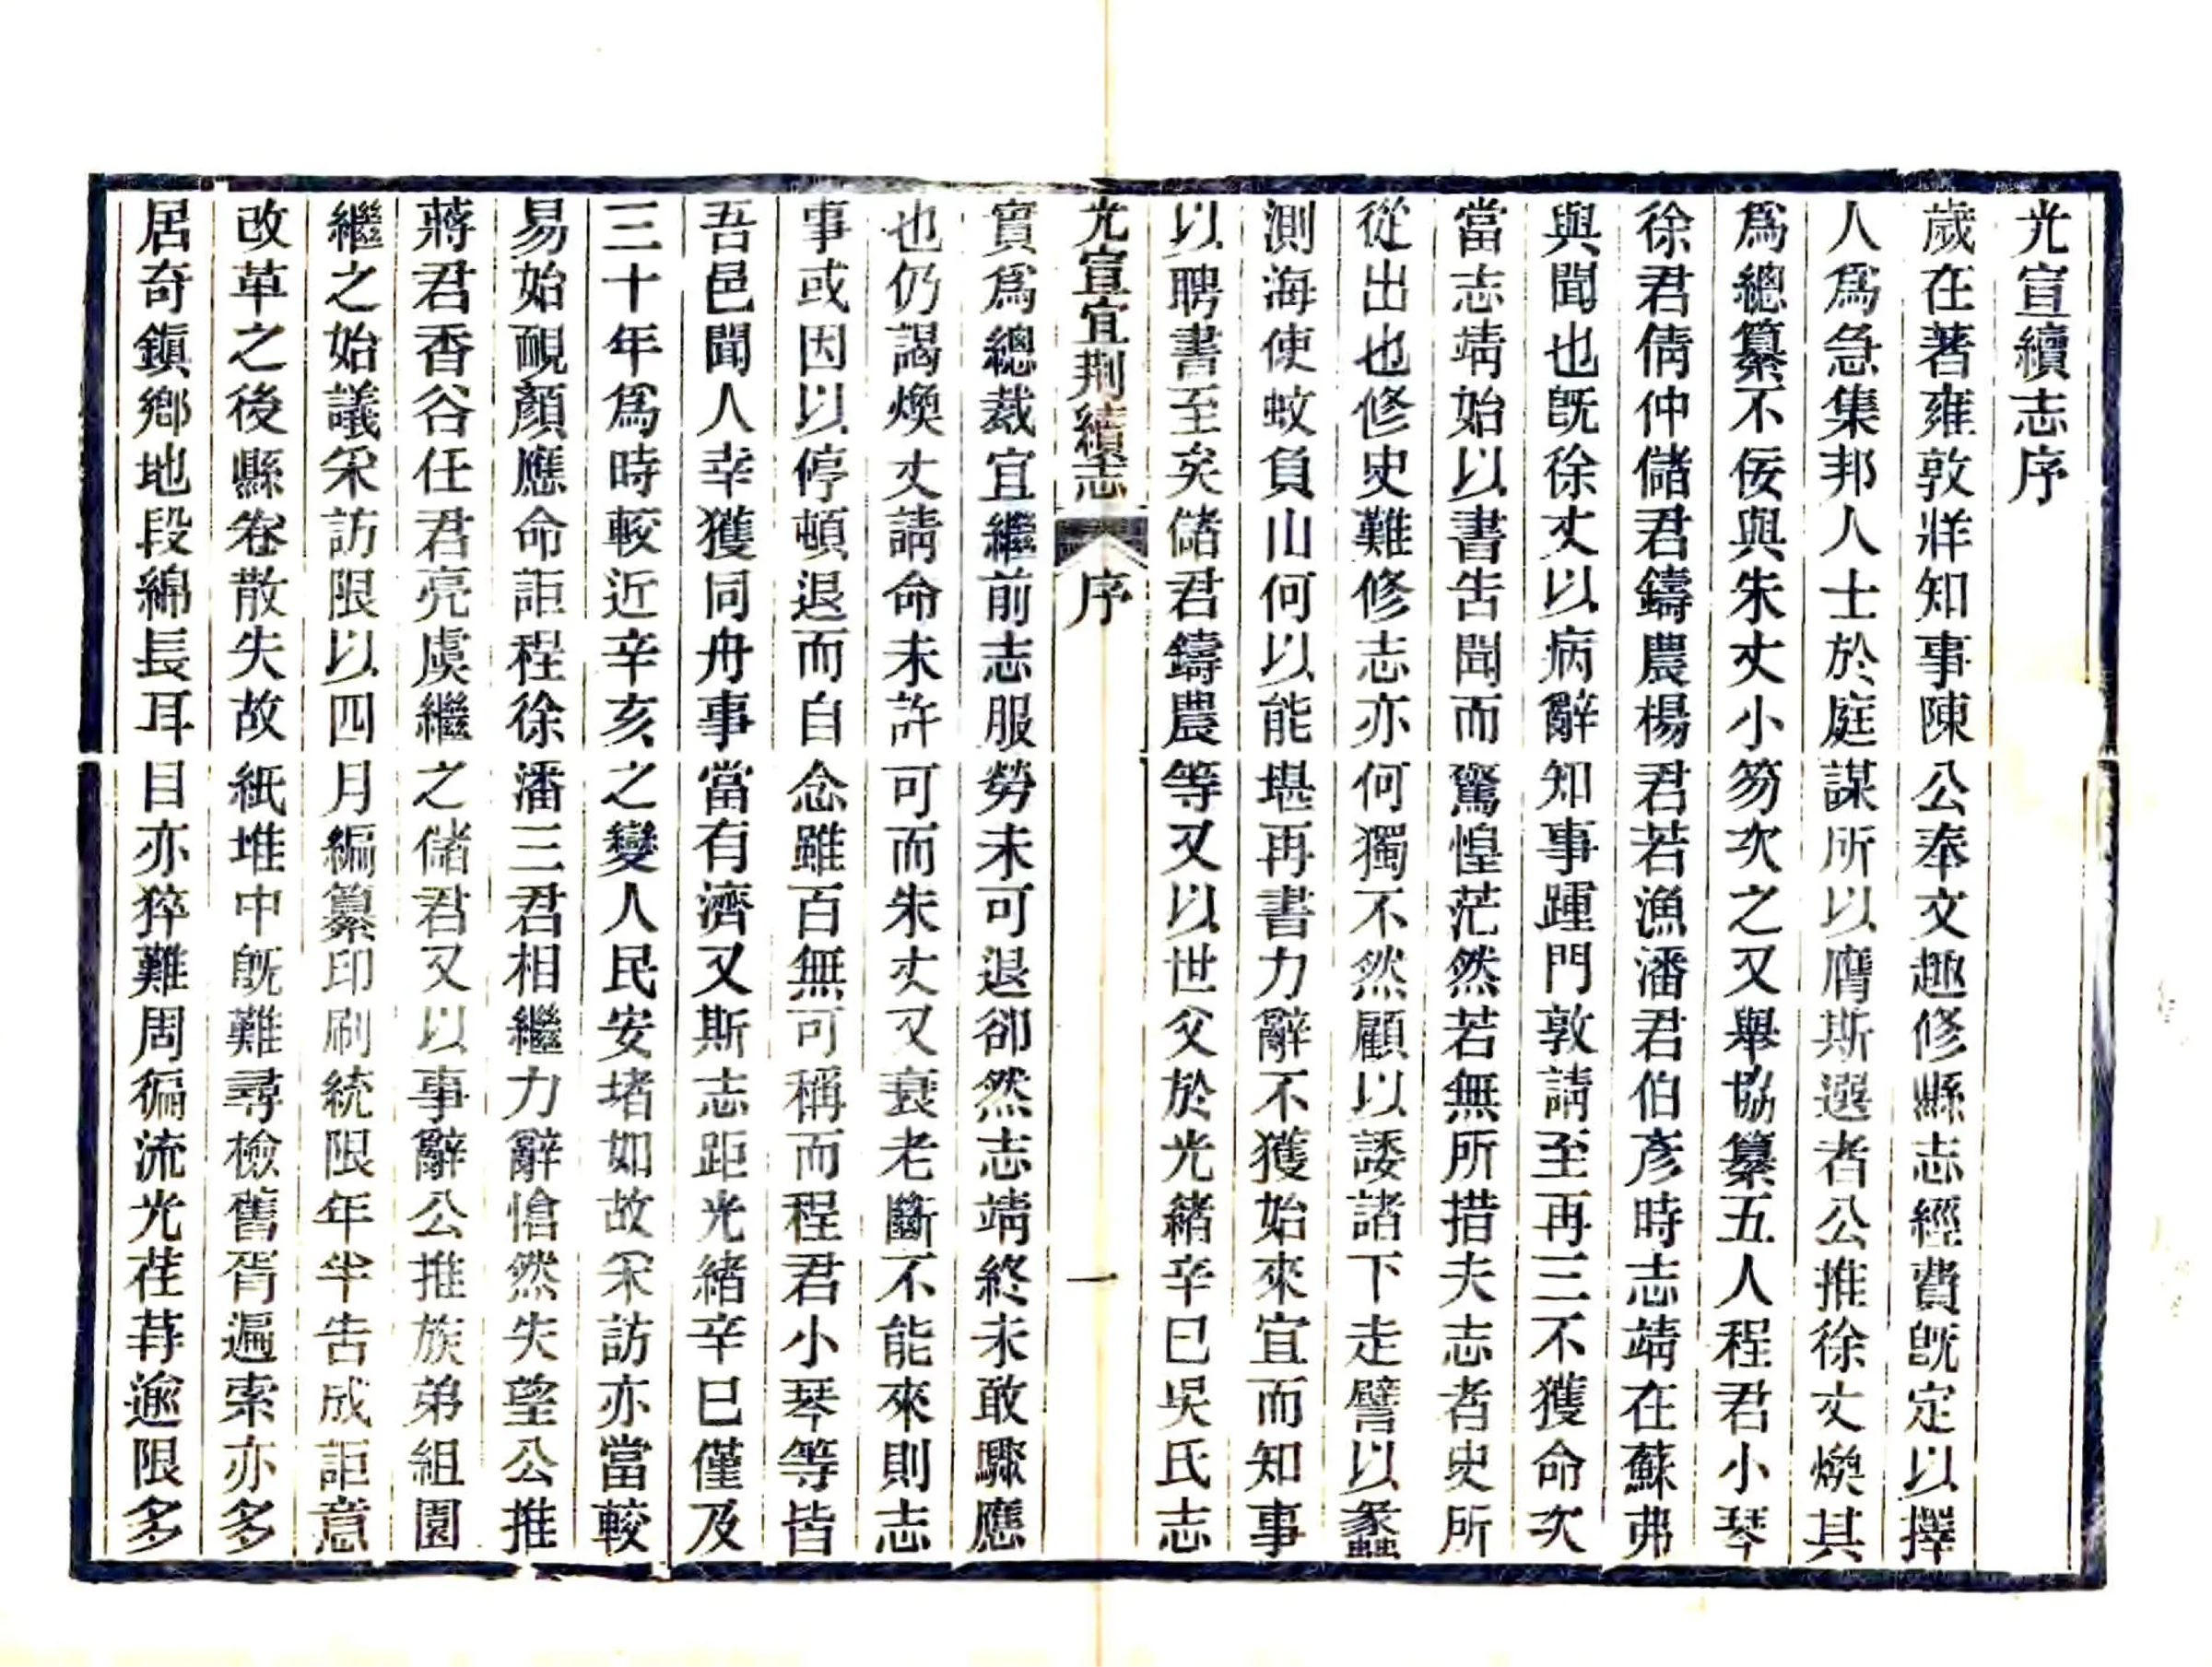 光宣續志序
歲在著雍敦牂知事陳公奉文趣修縣志經費旣定以擇
人爲急集邦人士於庭謀所以膺斯選者公推徐丈煥其
爲總纂不佞與朱丈小笏次之又舉協纂五人程君小琴
徐君倩仲儲君鑄農楊君若漁潘君伯彥時志靖在蘇弗
與聞也旣徐丈以病辭知事踵門敦請至再三不獲命次
當志靖始以書告聞而驚惶茫然若無所措夫志者史所
從出也修史難修志亦何獨不然顧以諉諸下走譬以蠡
測海使蚊負山何以能堪再書力辭不獲始來宜而知事
以聘書至矣儲君鑄農等又以世父於光緒辛巳吳氏志
光宣宜荆續志 序 一
實爲總裁宜繼前志服勞未可退卻然志靖終未敢驟應
也仍謁煥丈請命未許可而朱丈又衰老斷不能來則志
事或因以停頓退而自念雖百無可稱而程君小琴等皆
吾邑聞人幸獲同舟事當有濟又斯志距光緒辛巳僅及
三十年爲時較近辛亥之變人民安堵如故采訪亦當較
易始靦顏應命詎程徐潘三君相繼力辭愴然失望公推
蔣君香谷任君亮虞繼之儲君又以事辭公推族弟組園
繼之始議采訪限以四月編纂印刷統限年半告成詎意
改革之後縣卷散失故紙堆中旣難尋檢舊胥遍索亦多
居奇鎭鄉地段綿長耳目亦猝難周徧流光荏苒逾限多